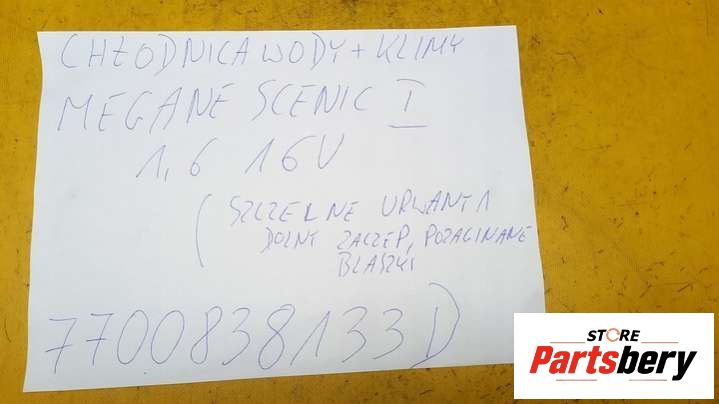 CHŁODNICA WODY + KLIMY
MEGANE SCENIC I
1,6 16V
(SZCZELNE URWANY 1
DOLNY ZACZEP, POZAGINANE
BLASZKI
7700838133D
STORE
Partsbery